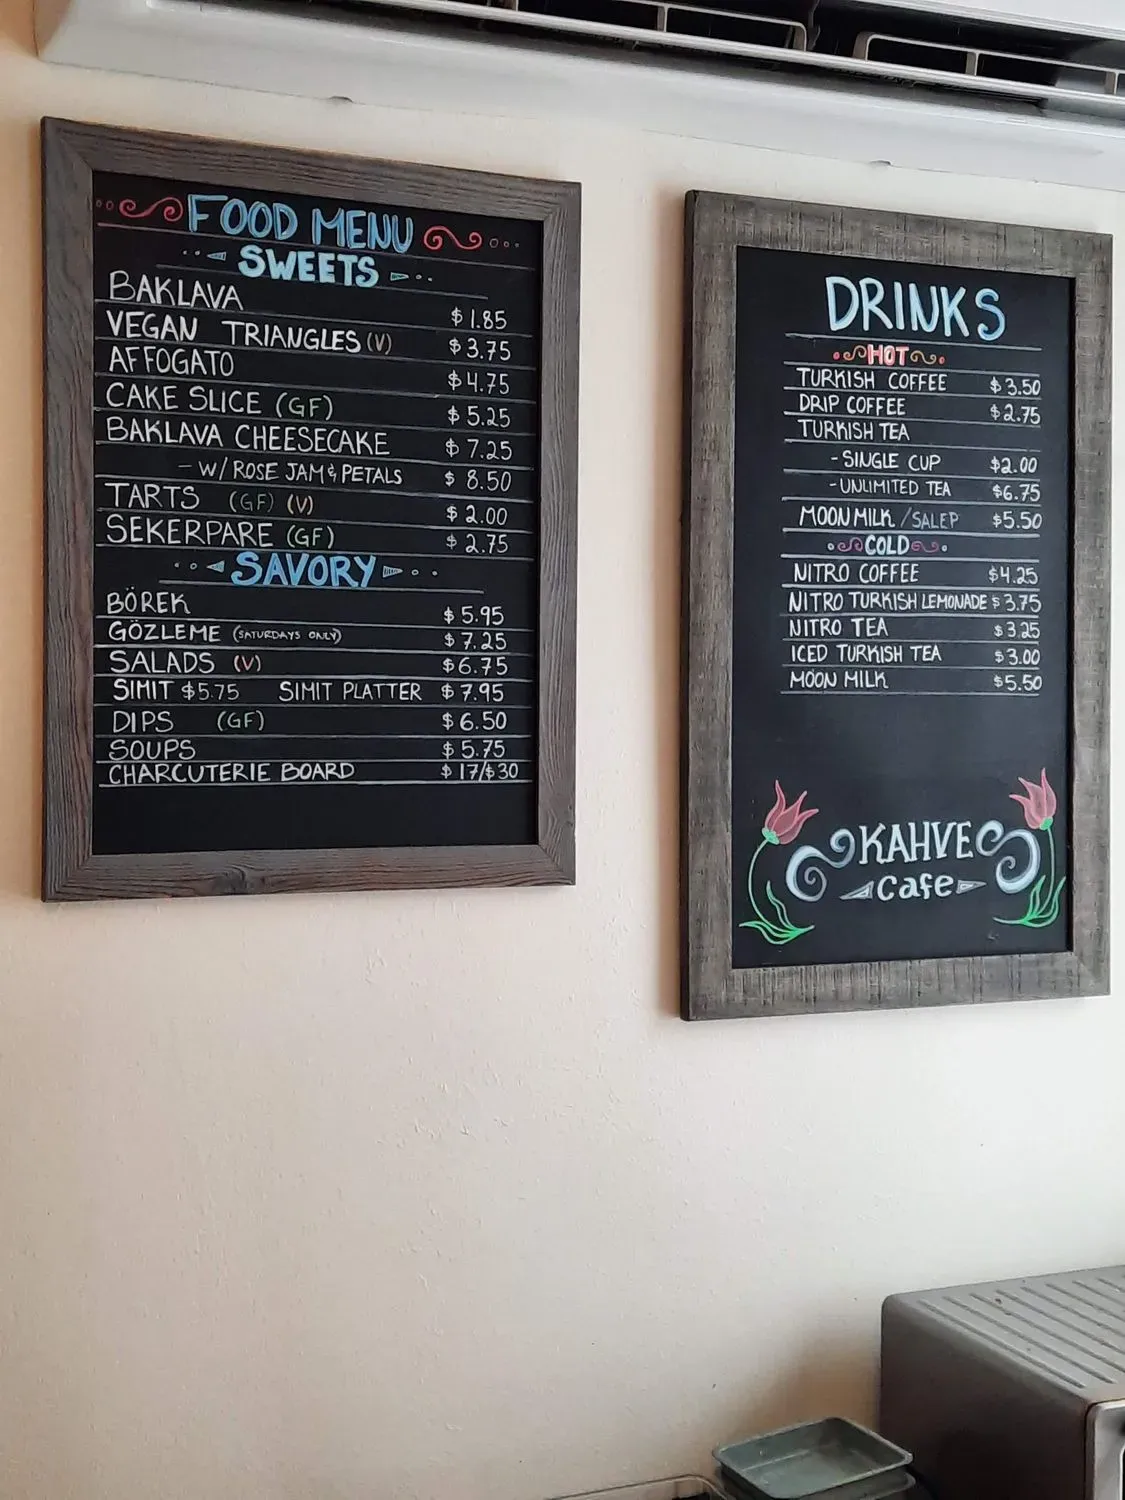 FOOD MENU
SWEETS
BAKLAVA $1.85
VEGAN TRIANGLES (V) $3.75
AFFOGATO $4.75
CAKE SLICE (GF) $5.25
BAKLAVA CHEESECAKE $7.25
- W/ ROSE JAM & PETALS $8.50
TARTS (GF) (V) $2.00
SEKERPARE (GF) $2.75
SAVORY
BÖREK $5.95
GÖZLEME (SATURDAYS ONLY) $7.25
SALADS (V) $6.75
SIMIT $5.75 SIMIT PLATTER $7.95
DIPS (GF) $6.50
SOUPS $5.75
CHARCUTERIE BOARD $17/$30
DRINKS
HOT
TURKISH COFFEE $3.50
DRIP COFFEE $2.75
TURKISH TEA
- SINGLE CUP $2.00
- UNLIMITED TEA $6.75
MOON MILK / SALEP $5.50
COLD
NITRO COFFEE $4.25
NITRO TURKISH LEMONADE $3.75
NITRO TEA $3.25
ICED TURKISH TEA $3.00
MOON MILK $5.50
KAHVE
cafe